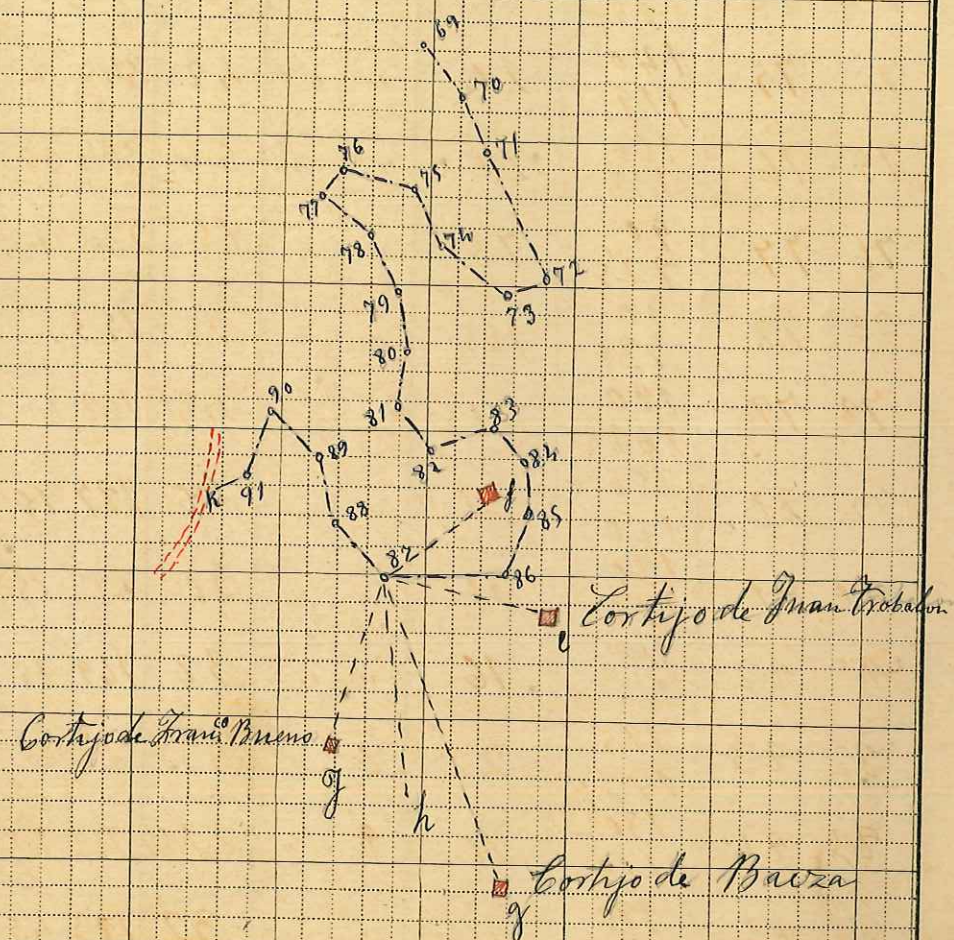 69
70
71
76
75
77
74
78
72
79
73
80
90
81
83
89
82
84
91
K
f
88
85
87
86
Cortijo de Juan
e
Cortijo de Fran.co Bueno
g
h
Cortijo de Baeza
g